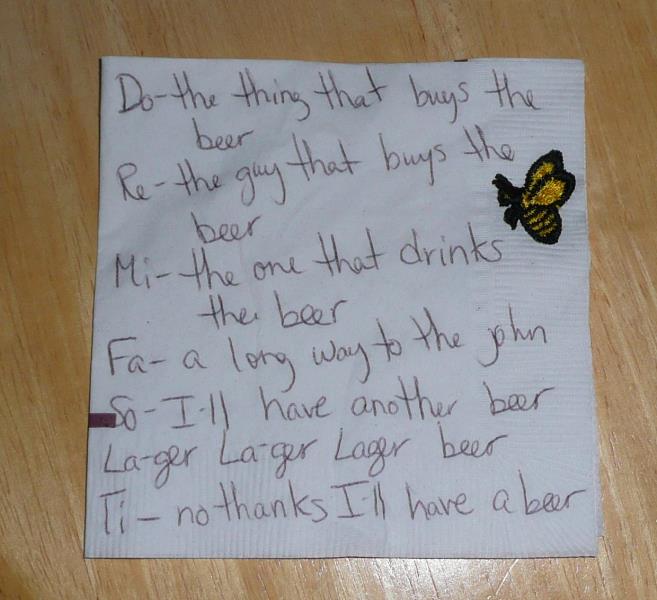 Do-the thing that buys the
beer
Re-the guy that buys the
beer
Mi-the one that drinks
the beer
Fa- a long way to the john
So-I'll have another beer
La-ger La-ger Lager beer
Ti- no thanks I'll have a beer